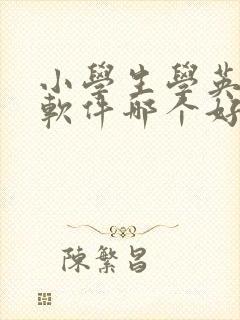 小學生學英
軟件哪個好
陳繁昌